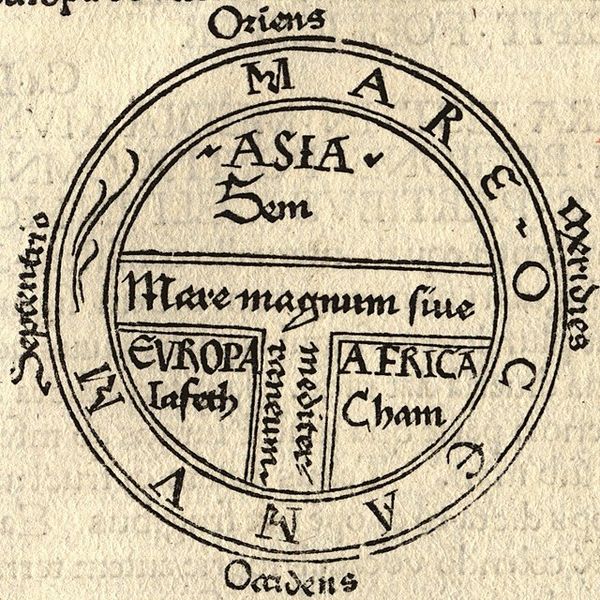 Oriens
MARE ~ OCEANVM
~ASIA~
Sem
Septentrio
Meridies
Mare magnum sive
mediter
raneum
EVROPA
Iafeth
AFRICA
Cham
Occidens